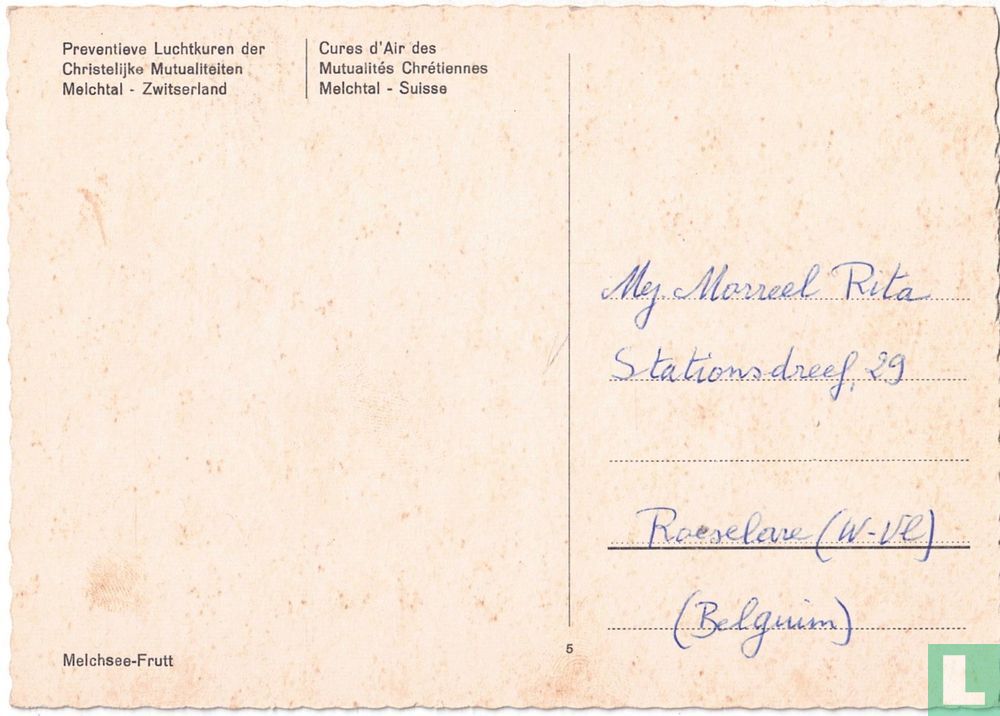 Preventieve Luchtkuren der
Christelijke Mutualiteiten
Melchtal - Zwitserland
Cures d'Air des
Mutualités Chrétiennes
Melchtal - Suisse
Mej. Morreel Rita
Stationsdreef, 29
Roeselare (W-Vl)
(Belguim)
5
Melchsee-Frutt
L